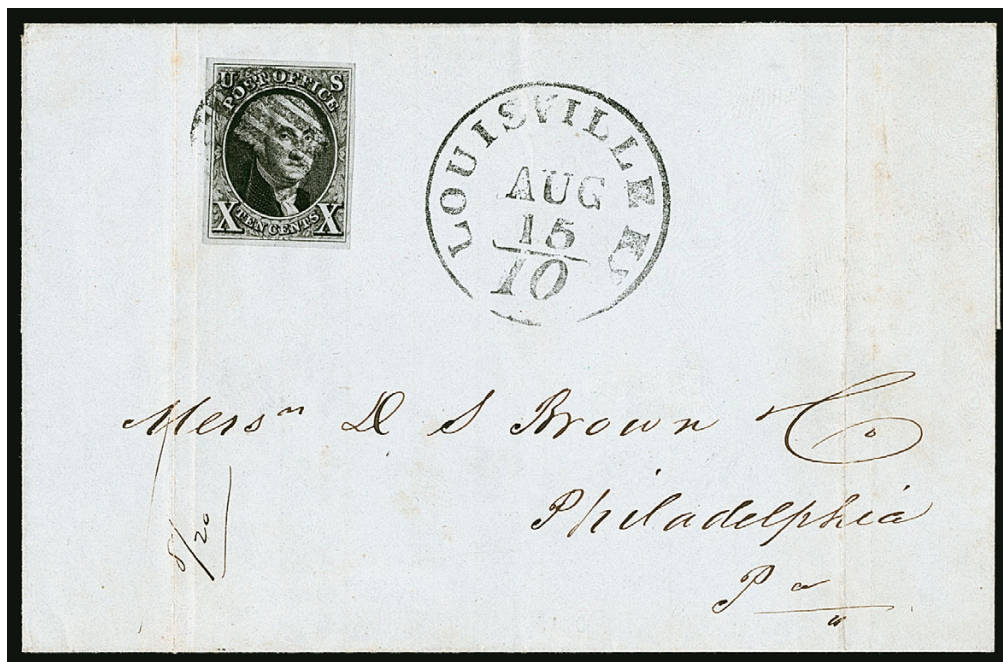 U S
POST OFFICE
X TEN CENTS X
LOUISVILLE Ky
AUG
15
10
Mers rs D S Brown & Co
Philadelphia
Pa
8/20